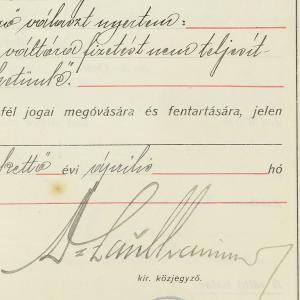 választ nyertem:
váltóra fizetést nem teljesít-
hetünk".
fél jogai megóvására és fentartására, jelen
kettő évi április hó
kir. közjegyző.